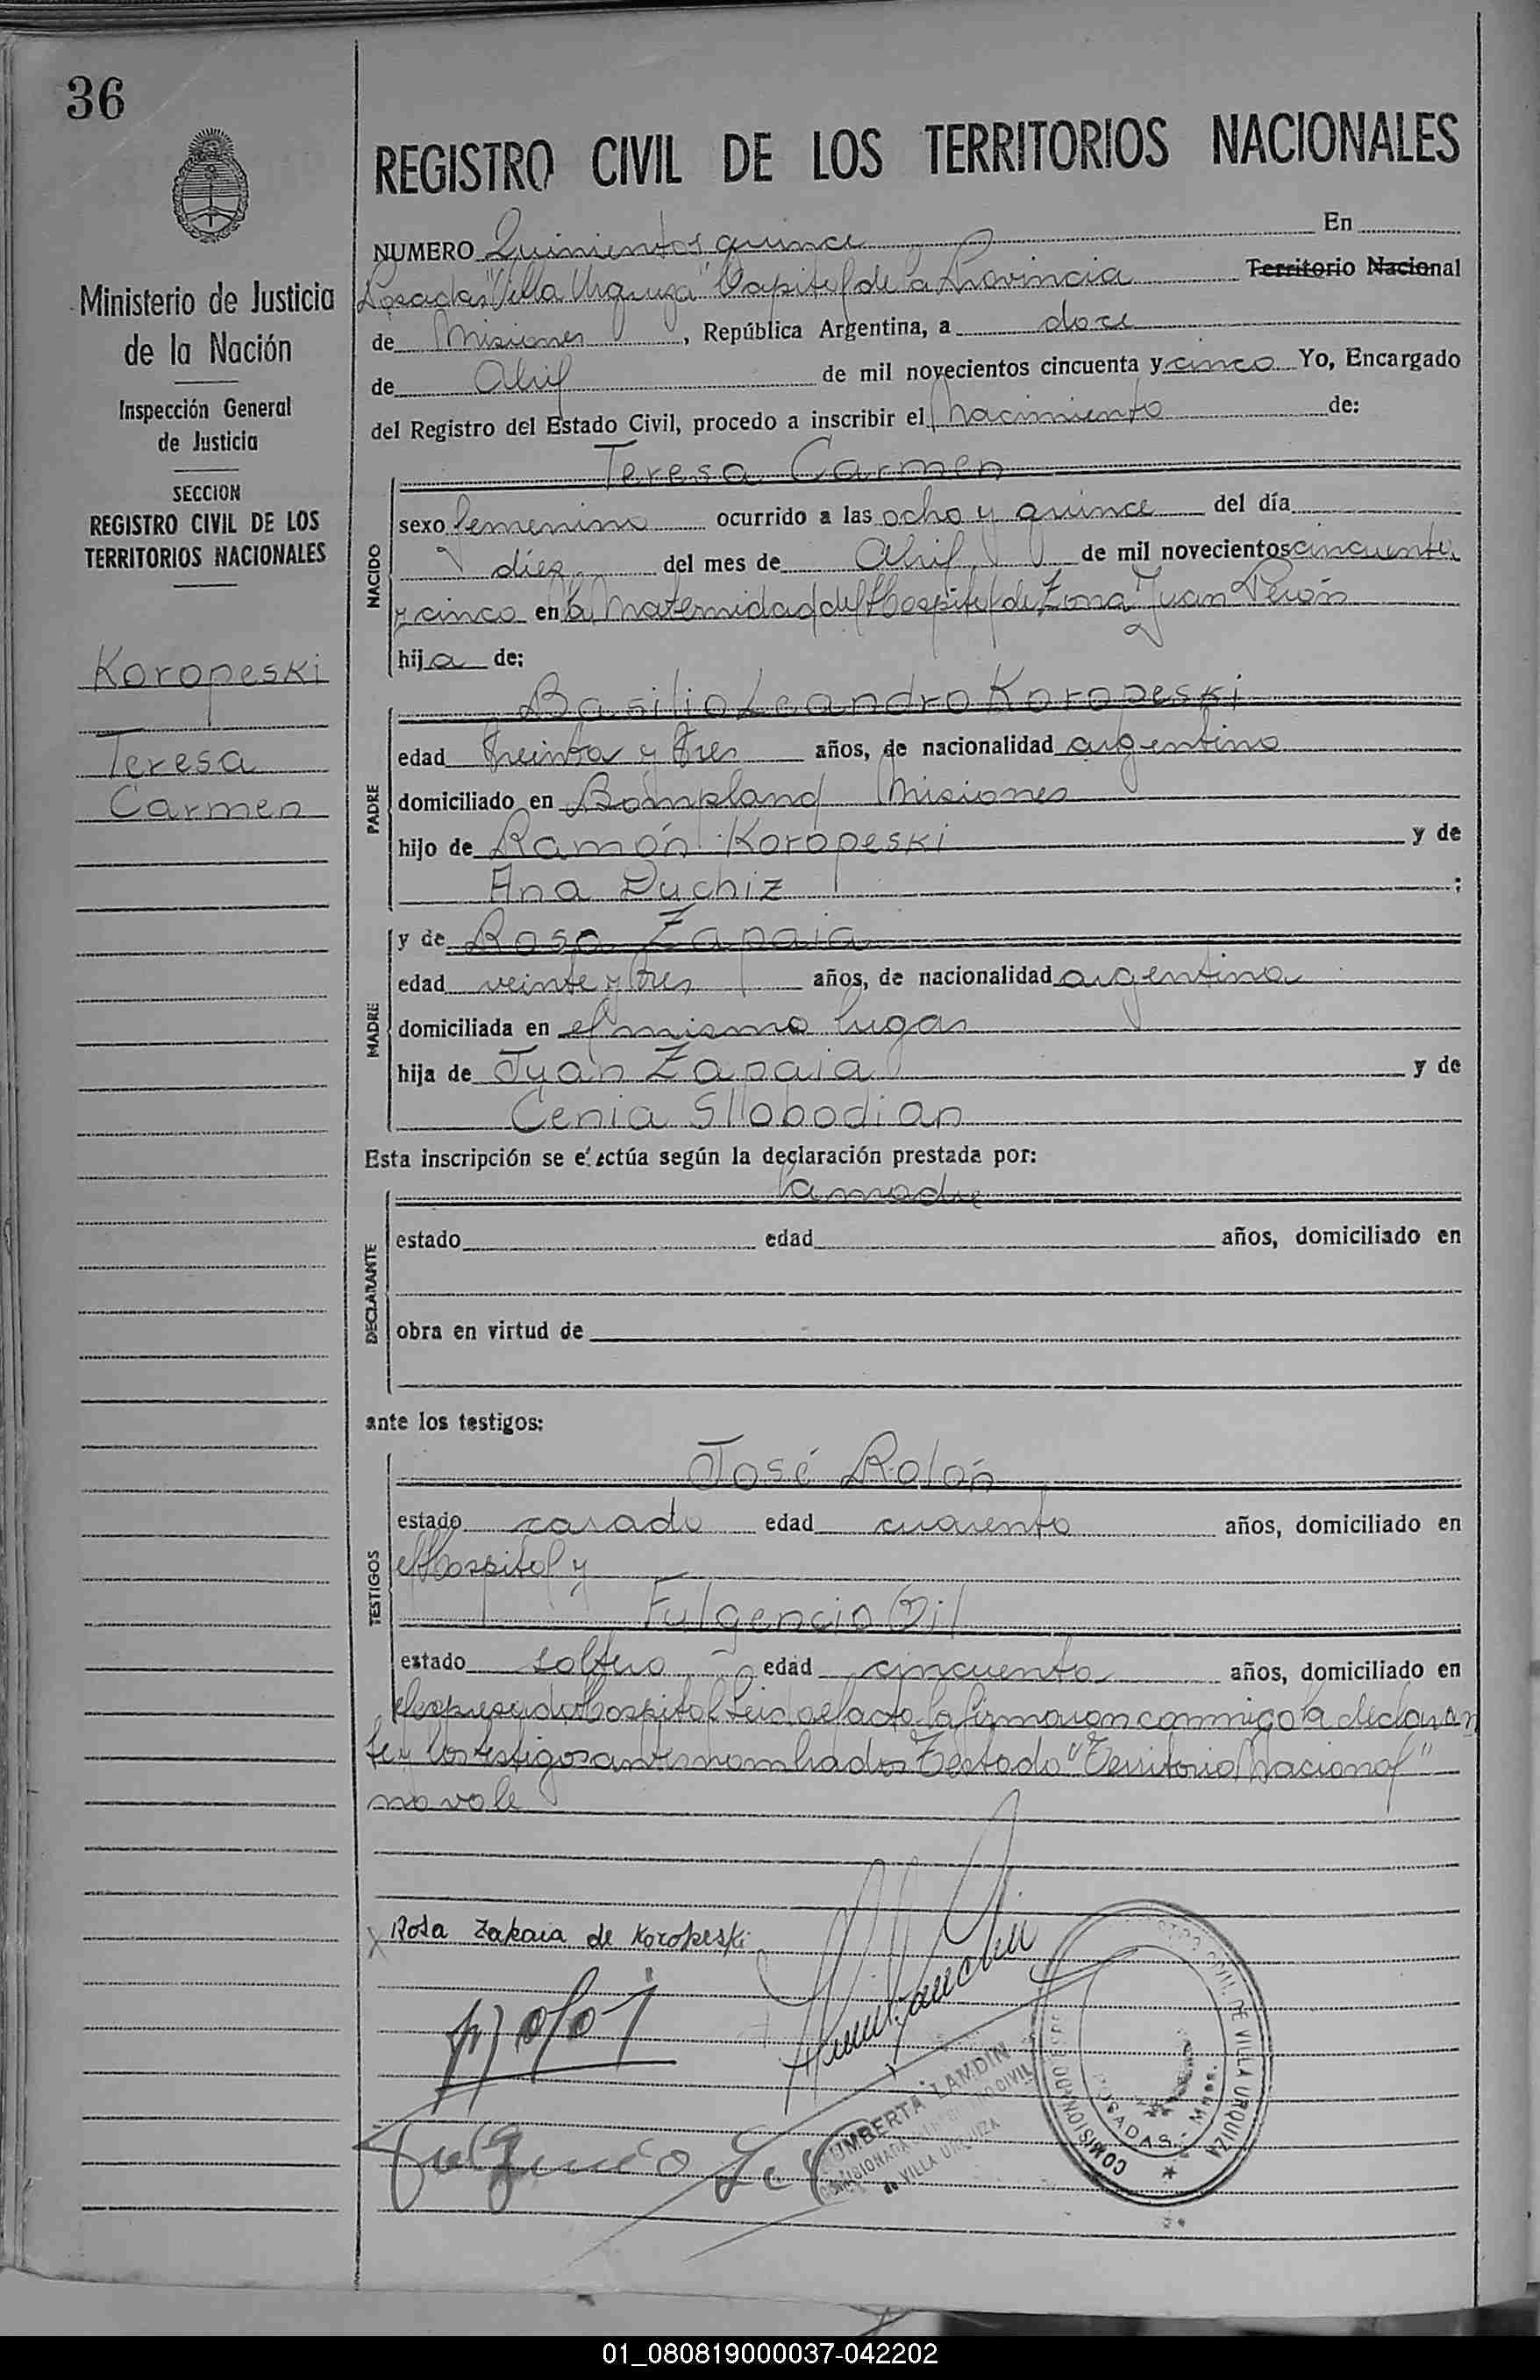 36
Ministerio de Justicia
de la Nación
Inspección General
de Justicia
SECCION
REGISTRO CIVIL DE LOS
TERRITORIOS NACIONALES
Koropeski
Teresa
Carmen
REGISTRO CIVIL DE LOS TERRITORIOS NACIONALES
NUMERO Quinientos quince En
Posadas "Villa Urquiza" Capital de la Provincia Territorio Nacional
de Misiones, República Argentina, a doce
de Abril de mil novecientos cincuenta y cinco Yo, Encargado
del Registro del Estado Civil, procedo a inscribir el Nacimiento de:
Teresa Carmen
NACIDO
sexo femenino ocurrido a las ocho y quince del día
diez del mes de Abril de mil novecientos cincuenta
y cinco en la Maternidad del Hospital de Zona "Juan Perón
hija de:
Basilio Leandro Koropeski
PADRE
edad treinta y tres años, de nacionalidad argentino
domiciliado en Bompland Misiones
hijo de Ramón Koropeski y de
Ana Duchiz ;
MADRE
y de Rosa Zapaia
edad veinte y tres años, de nacionalidad argentina
domiciliada en el mismo lugar
hija de Juan Zapaia y de
Cenia Sllobodian
Esta inscripción se efectúa según la declaración prestada por:
la madre
DECLARANTE
estado edad años, domiciliado en
obra en virtud de
ante los testigos:
José Rolón
TESTIGOS
estado casado edad cuarenta años, domiciliado en
el Hospital y
Fulgencio Gil
estado soltero edad cincuenta años, domiciliado en
el expresado Hospital Leida el acta la firmaron conmigo la declaran
te y los testigos antes nombrados Testado "Territorio Nacional"
no vale
Rosa Zapaia de Koropeski
Fulgencio Gil
UMBERTA LAMDIN
de VILLA URQUIZA
CIVIL DE VILLA URQUIZA
POSADAS - Mnes.
01_080819000037-042202